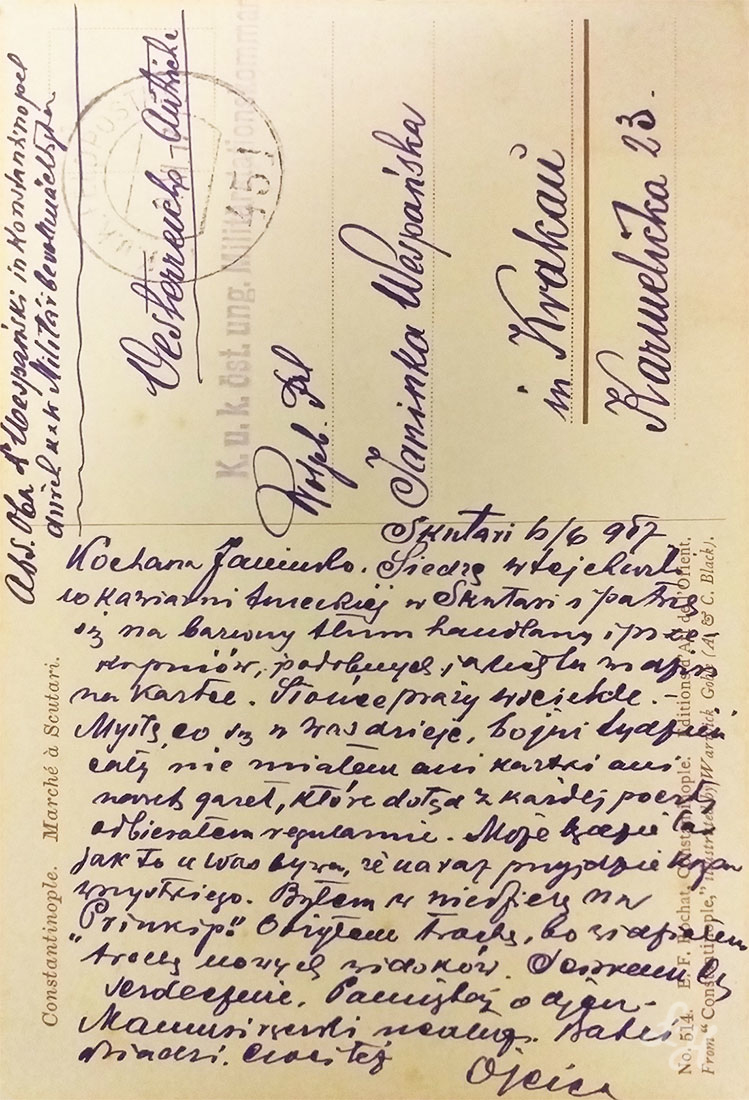 Abs. Obn. Dr Waspański in Konstantinopel
durch k u k Militärbevollmächtigten
Oesterreich - Autriche
K. u. k. öst. ung. Militär
451
Wolph. Frl
Janinka Waspańska
in Krakau
Karmelicka 23.
Skutari 6/6 917
Kochana Janinko. Siedzę w tej chwili
w kawiarni tureckiej w Skutari i patrzę
się na barwny tłum handlarzy i prze-
kupniów, podobnych jak widzisz
na kartce. Słońce praży wściekle. -
Myślę, co się u was dzieje, bo już tydzień
cały nie miałem ani kartki ani
nawet gazet, które dotąd z każdej poczty
odbierałem regularnie. Może będzie tak
jak to u was bywa, że naraz przyjdzie kupa
wszystkiego. Byłem w niedzielę na
"Prinkipo" Odżyłem trochę, bo widziałem
trochę nowych widoków. Ściskam Cię
serdecznie. Pamiętaj o
Mamusi Babci
dziadzi. Cioci też
Ojciec
Constantinople. Marché à Scutari.
No. 514. E. F. Rochat, Constantinople. Editions d'Art de l'Orient.
From "Constantinople," illustrated by Warwick Goble (A. & C. Black).